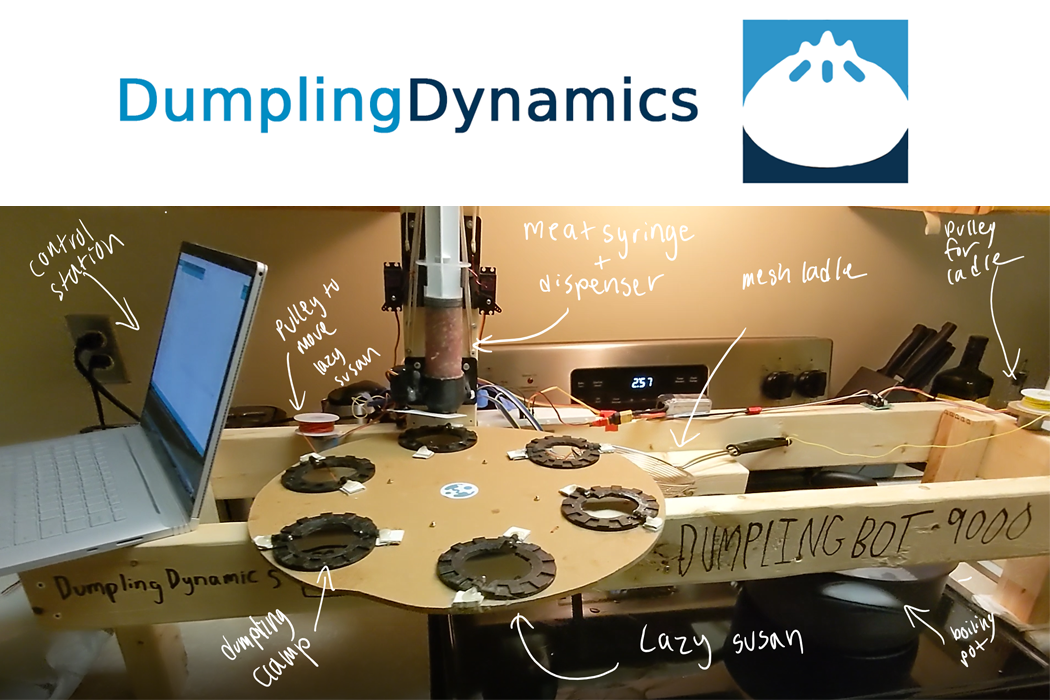 DumplingDynamics
control
station
pulley to
move
lazy
susan
meat syringe
+
dispenser
mesh ladle
pulley
for
ladle
2:57
DUMPLING BOT-9000
Dumpling Dynamics
dumpling
clamp
Lazy susan
boiling
pot